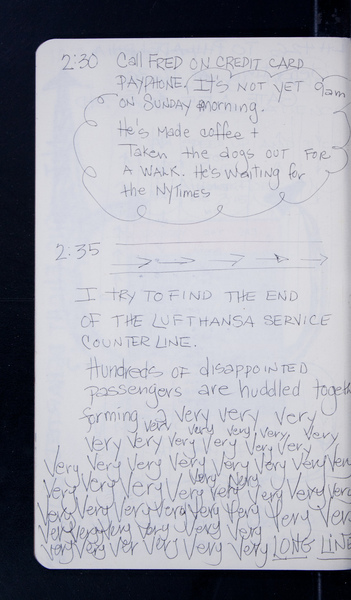 2:30 Call FRED ON CREDIT CARD
PAYPHONE. It's NOT YET 9am
ON SUNDAY morning.
He's Made coffee +
Taken the dogs out FOR
A WALK. He's waiting for
the NYTimes
2:35
I TRY TO FIND THE END
OF THE LUFTHANSA SERVICE
COUNTER LINE.
Hundreds of disappointed
passengers are huddled togeth
forming a very very very
very very very very very
very very very very very very
Very very very very very very very very
very very very very very
very very very very very very
very very very very very very very very
very very very very very very
very very very very very very LONG LINE